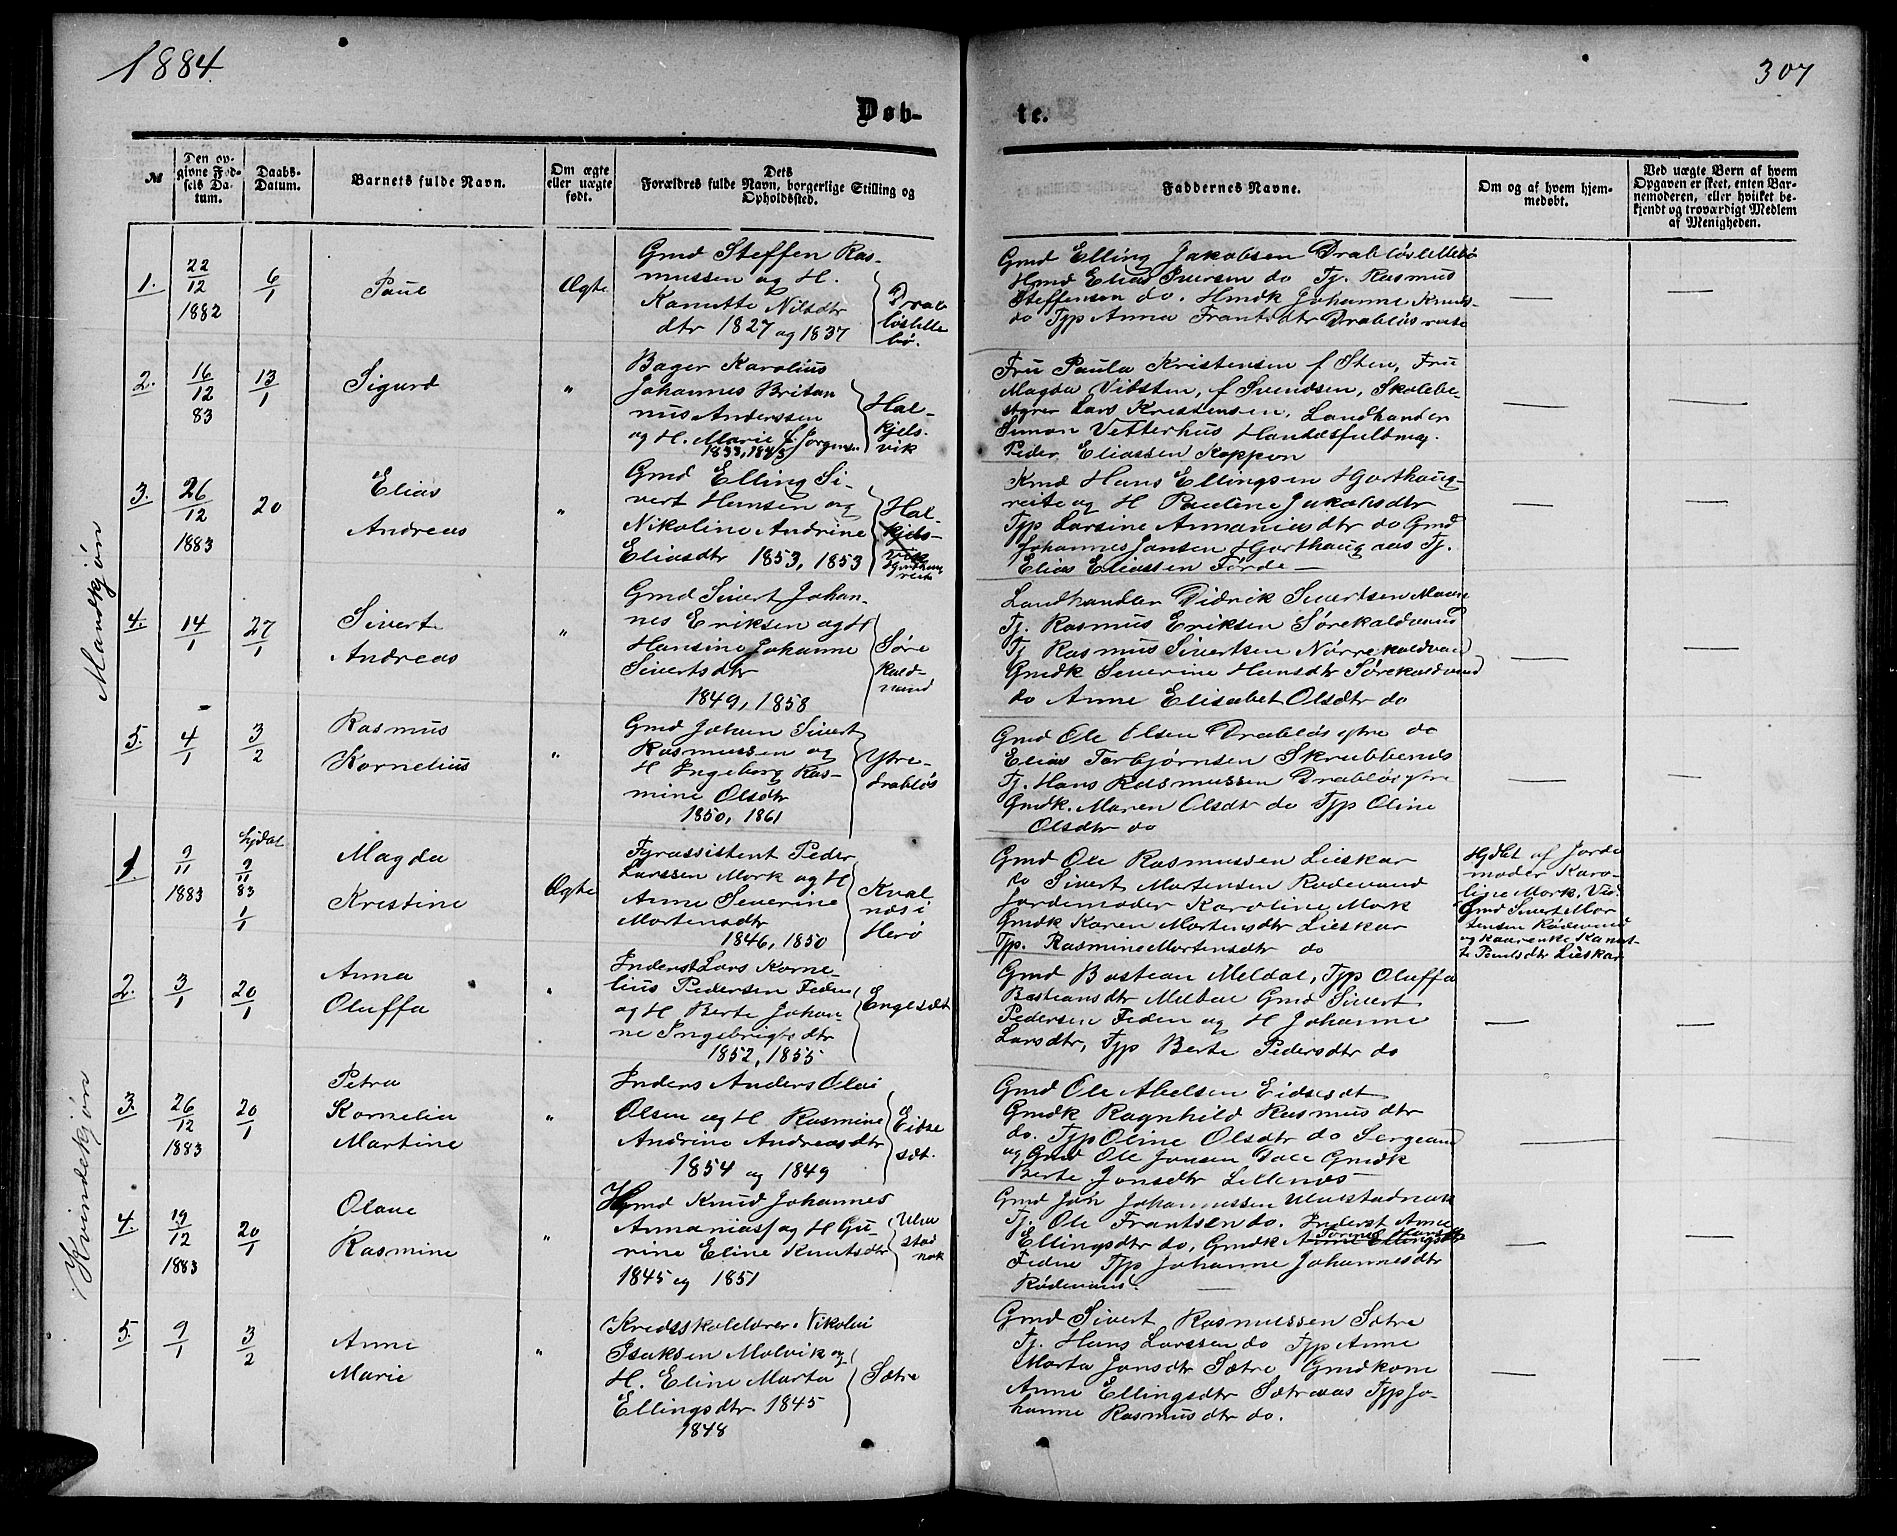 1884
307
Døb-
te.
№
Den op-
givne Fød-
sels Da-
tum.
Daabs-
Datum.
Barnets fulde Navn.
Om ægte
eller uægte
født.
Dets
Forældres fulde Navn, borgerlige Stilling og
Opholdssted.
Faddernes Navne.
Om og af hvem hjem-
medøbt.
Ved uægte Børn af hvem
Opgaven er skeet, enten Bar-
nemoderen, eller hvilket be-
kjendt og troværdigt Medlem
af Menigheden.
Mandkjøn
1.
22
12
1882
6
1
Paul
Ægte
Gmd Steffen Ras-
mussen og H.
Kanutte Nilsdtr
dtr 1827 og 1837
Drab
løslille
bø.
Gmd Elling Jakobsen Drabløslillebø
Hmd Elias Iversen do Tj. Rasmus
Steffensen do. Hmdk Johanne Knuds-
do Typ Anna Frantsdtr Drabløs
2.
16
12
83
13
1
Sigurd
"
Bager Karolius
Johannes Britan
nus Anderssen
og H. Marie f. Jørgensen
1853, 1843
Hal-
kjels-
vik
Fru Paula Kristensen f Sten, Fru
Magda Vibsten, f Svendsen, Skolebe-
styrer Lars Kristensen, Landhander
Simon Vetterhus Handelsfuldmæg.
Peder Eliassen Koppen
3.
26
12
1883
20
Elias
Andreas
"
Gmd Elling Si-
vert Hansen og
Nikoline Andrine
Eliasdtr 1853, 1853
Hal-
kjels-
vik
Hjorthaug
reite
Kmd Hans Ellingsen Hjorthaug-
reite og H Pauline Jakobsdtr
Typ Larsine Ananiasdtr do Gmd
Johannes Jansen Hjorthaug aas Tj.
Elias Eliassen Førde
4.
14
1
27
1
Sivert
Andreas
"
Gmd Sivert Johan-
nes Eriksen og H
Hansine Johanne
Sivertsdtr
1849, 1858
Søre
kald-
vand
Landhandler Didrik Sivertsen
Tj. Rasmus Eriksen Sørekaldvand
Tj Rasmus Sivertsen Nørrekaldvand
Gmdk Severine Hansdtr Sørekaldvand
do Anne Elisabet Olsdtr do
5.
4
1
3
2
Rasmus
Kornelius
"
Gmd Johan Sivert
Rasmussen og
H Ingeborg Ras-
mine Olsdtr
1850, 1861
Ytre-
drabløs
Gmd Ole Olsen Drabløs ytre do
Elias Torbjørnsen Skrubbenes
Tj. Hans Rasmussen Drabløs ytre
Gmdk. Maren Olsdtr do Typ Oline
Olsdtr do
Kvindekjøn
1
9
11
1883
hjdøbt
9
11
83
1
1
Magda
Kristine
Ægte
Fyrassistent Peder
Larssen Mork og H
Anne Severine
Mortensdtr
1846, 1850
Kval-
næs i
Herø
Gmd Ole Rasmussen Lieskar
do Sivert Mortensen Rødevand
Jordemoder Karoline Mork
Gmdk Karen Mortensdtr Lieskar
Typ. Rasmine Mortensdtr do
Hjdbt af Jorde
moder Karo-
line Mork, Vid.
Gmd Sivert Mor
tensen Rødevand
og Kaarenke Kanut-
te Poulsdtr Lieskar
2.
3
1
20
1
Anna
Oluffa
"
Inderst Lars Korne-
lius Pedersen Feden
og H Berte Johan-
ne Ingebrigtsdtr
1852, 1855
Engesæt
Gmd Bastian Meldal, Typ Oluffa
Bastiansdtr Meldal Gmd Sivert
Pedersen Feden og H Johanne
Larsdtr, Typ Berte Pedersdtr do
3.
26
12
1883
20
1
Petra
Kornelia
Martine
"
Inders Anders Olai
Olsen og H Rasmine
Andrine Andreasdtr
1854 og 1849
Eidse
sæt.
Gmd Ole Abelsen Eidsesæt
Gmdk Ragnhild Rasmusdtr
do. Typ Oline Olsdtr do Sergeand
og Gmd Ole Jonsen Dale Gmdk
Berte Jonsdtr Lillenes
4.
19
12
1883
20
1
Olaue
Rasmine
"
Hmd Knud Johannes
Ananiass. og H Gu-
rine Eline Knutsdtr
1845 og 1851
Ulve
stad
nok
Gmd Jon Johannessen Ulvestadnok
Tj. Ole Frantsen do. Inderst Anne
Ellingsdtr do, Gmdk Anne Ellingsdtr
Feden Typ Johanne Johannesdtr
Rødevand.
5.
9
1
3
2
Anne
Marie
"
Kredsskolelærer Nikolai
Isaksen Molvik og
H. Eline Marta
Ellingsdtr. 1845
1848
Sætre
Gmd Sivert Rasmussen Sætre
Tj. Hans Larssen do Typ Anne
Marta Jonsdtr Sætre Gmdkone
Anne Ellingsdtr Sætreaas Typ Jo-
hanne Rasmusdtr do.